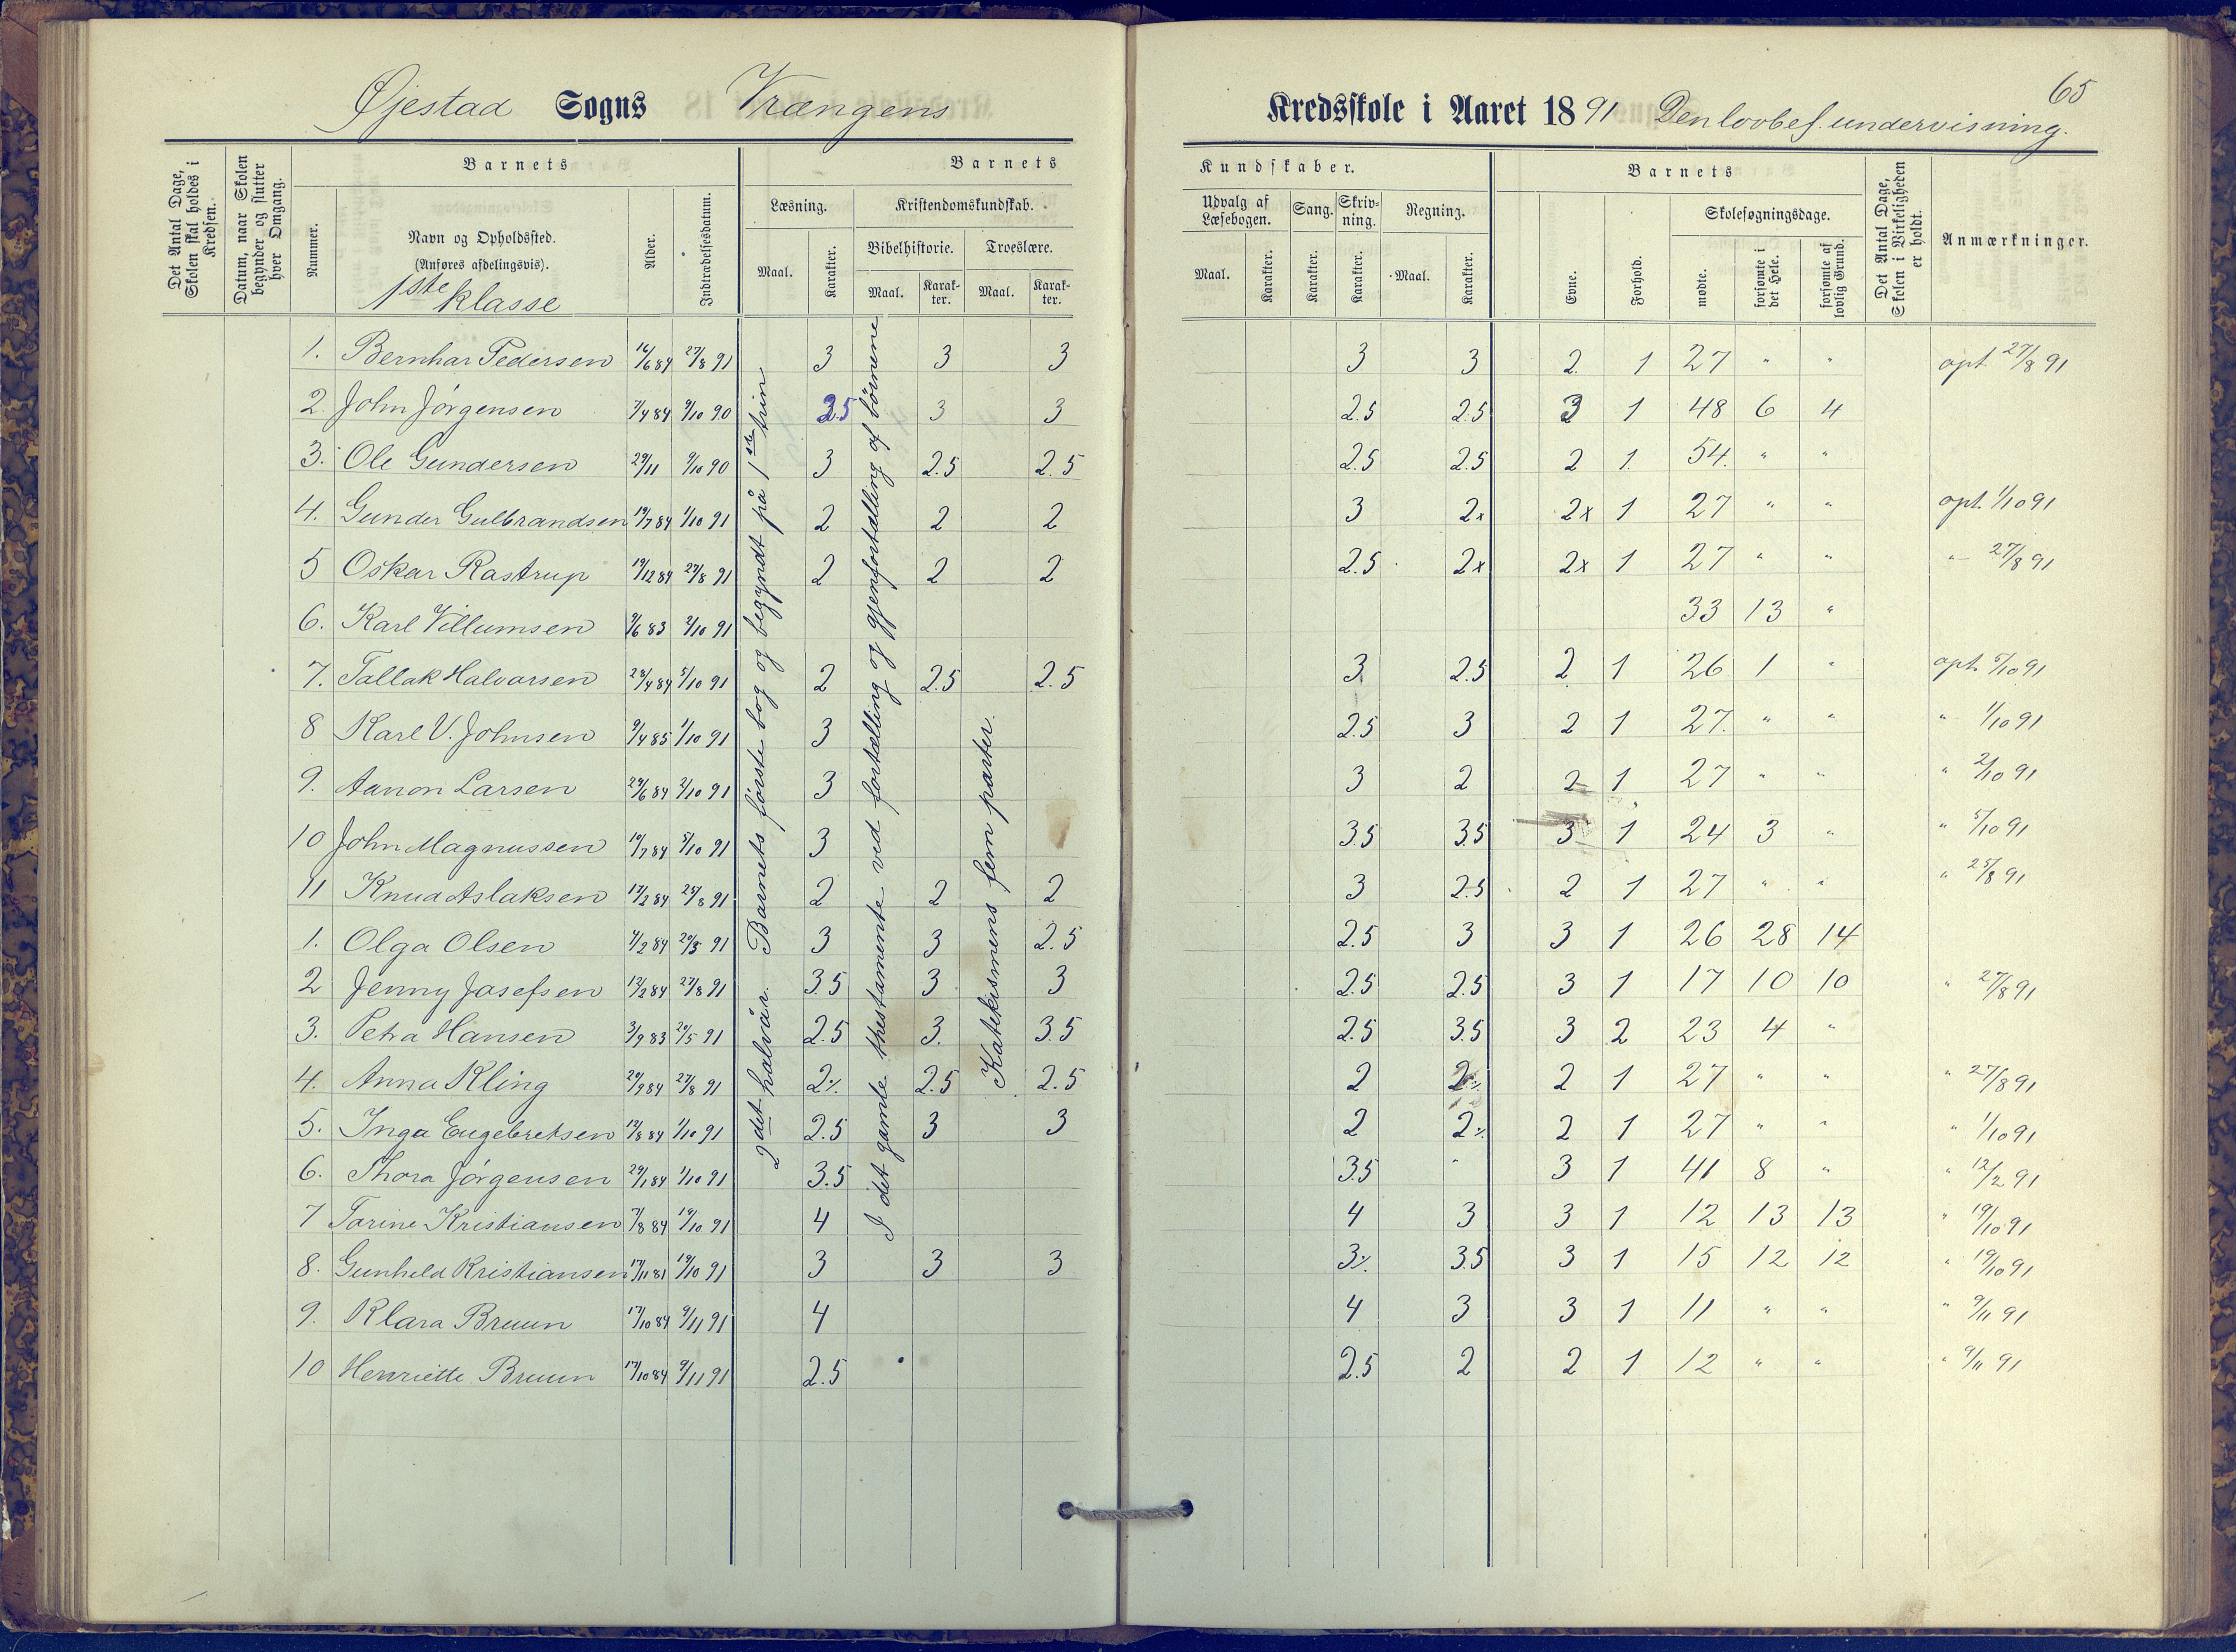 Øjestad Sogns Vrængens Kredsskole i Aaret 1891 Den lovbef. undervisning. 65
Det Antal Dage, Skolen skal holdes i Kredsen.
Datum, naar Skolen begynder og slutter hver Omgang.
Barnets
Nummer.
Navn og Opholdssted.
(Anføres afdelingsvis).
1ste klasse
Alder.
Indtrædelsesdatum.
Barnets Kundskaber.
Læsning.
Maal.
Karakter.
Kristendomskundskab.
Bibelhistorie.
Maal.
Karakter.
Troeslære.
Maal.
Karakter.
Udvalg af Læsebogen.
Maal.
Karakter.
Sang.
Karakter.
Skrivning.
Karakter.
Regning.
Maal.
Karakter.
Barnets
Evne.
Forhold.
Skolesøgningsdage.
mødte.
forsømte i det Hele.
forsømte af lovlig Grund.
Det Antal Dage, Skolen i Virkeligheden er holdt.
Anmærkninger.
2det halvår. Barnets første bog og begyndt på 1ste trin
I det gamle thestamente ved fortælling og gjenfortælling af børnene
Katekismens fem parter.
1. Bernhar Pedersen 16/6 84 27/8 91 3 3 3 3 3 2 1 27 " " opt 27/8 91
2 John Jørgensen 7/4 84 9/10 90 2.5 3 3 2.5 2.5 3 1 48 6 4
3. Ole Gundersen 29/11 9/10 90 3 2.5 2.5 2.5 2.5 2 1 54 " "
4. Gunder Gulbrandsen 19/7 84 1/10 91 2 2 2 3 2x 2x 1 27 " " opt. 1/10 91
5 Oskar Rastrup 19/12 84 27/8 91 2 2 2 2.5 2x 2x 1 27 " " " 27/8 91
6. Karl Villumsen 9/6 83 2/10 91 33 13 "
7. Tallak Halvorsen 28/4 84 5/10 91 2 2.5 2.5 3 2.5 2 1 26 1 " opt. 5/10 91
8 Karl V. Johnsen 9/4 85 1/10 91 3 2.5 3 2 1 27 " " " 1/10 91
9. Aanon Larsen 29/6 84 2/10 91 3 3 2 2 1 27 " " " 2/10 91
10 John Magnussen 10/7 84 5/10 91 3 3.5 3.5 3 1 24 3 " " 5/10 91
11 Knud Aslaksen 17/2 84 25/8 91 2 2 2 3 2.5 2 1 27 " " " 25/8 91
1. Olga Olsen 4/2 84 20/5 91 3 3 2.5 2.5 3 3 1 26 28 14
2 Jenny Josefsen 12/2 84 27/8 91 3.5 3 3 2.5 2.5 3 1 17 10 10 " 27/8 91
3. Petra Hansen 3/9 83 20/5 91 2.5 3. 3.5 2.5 3.5 3 2 23 4 "
4. Anna Kling 20/9 84 27/8 91 2% 2.5 2.5 2 2% 2 1 27 " " " 27/8 91
5. Inga Engebretsen 12/8 84 1/10 91 2.5 3 3 2 2% 2 1 27 " " " 1/10 91
6. Thora Jørgensen 29/1 84 1/10 91 3.5 3.5 " 3 1 41 8 " " 12/2 91
7 Torine Kristiansen 7/8 84 19/10 91 4 4 3 3 1 12 13 13 " 19/10 91
8. Gunhild Kristiansen 17/11 81 19/10 91 3 3 3 3% 3.5 3 1 15 12 12 " 19/10 91
9. Klara Bruun 17/10 84 9/11 91 4 4 3 3 1 11 " " " 9/11 91
10 Henriette Bruun 17/10 84 9/11 91 2.5 2.5 2 2 1 12 " " " 9/11 91